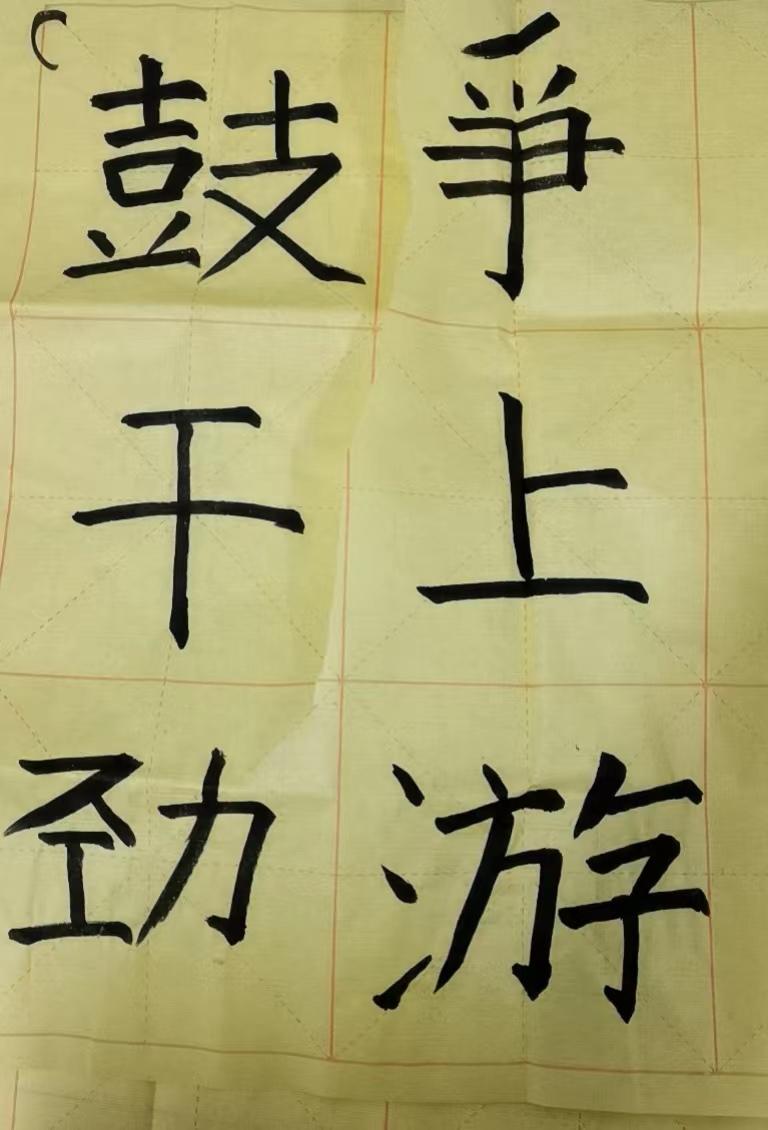 爭上游
鼓干劲